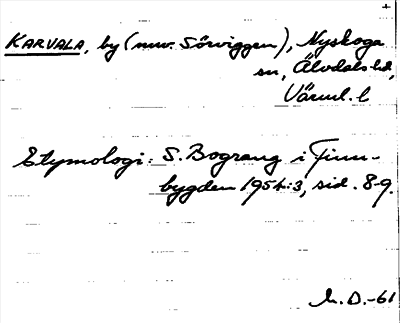 +
KARVALA, by (nuv. Sörviggen), Nyskoga
sn, Älvdals hd,
Värml. l
Etymologi: S. Bograng i Finn-
bygden 1954:3, sid. 8-9.
M.D.-61